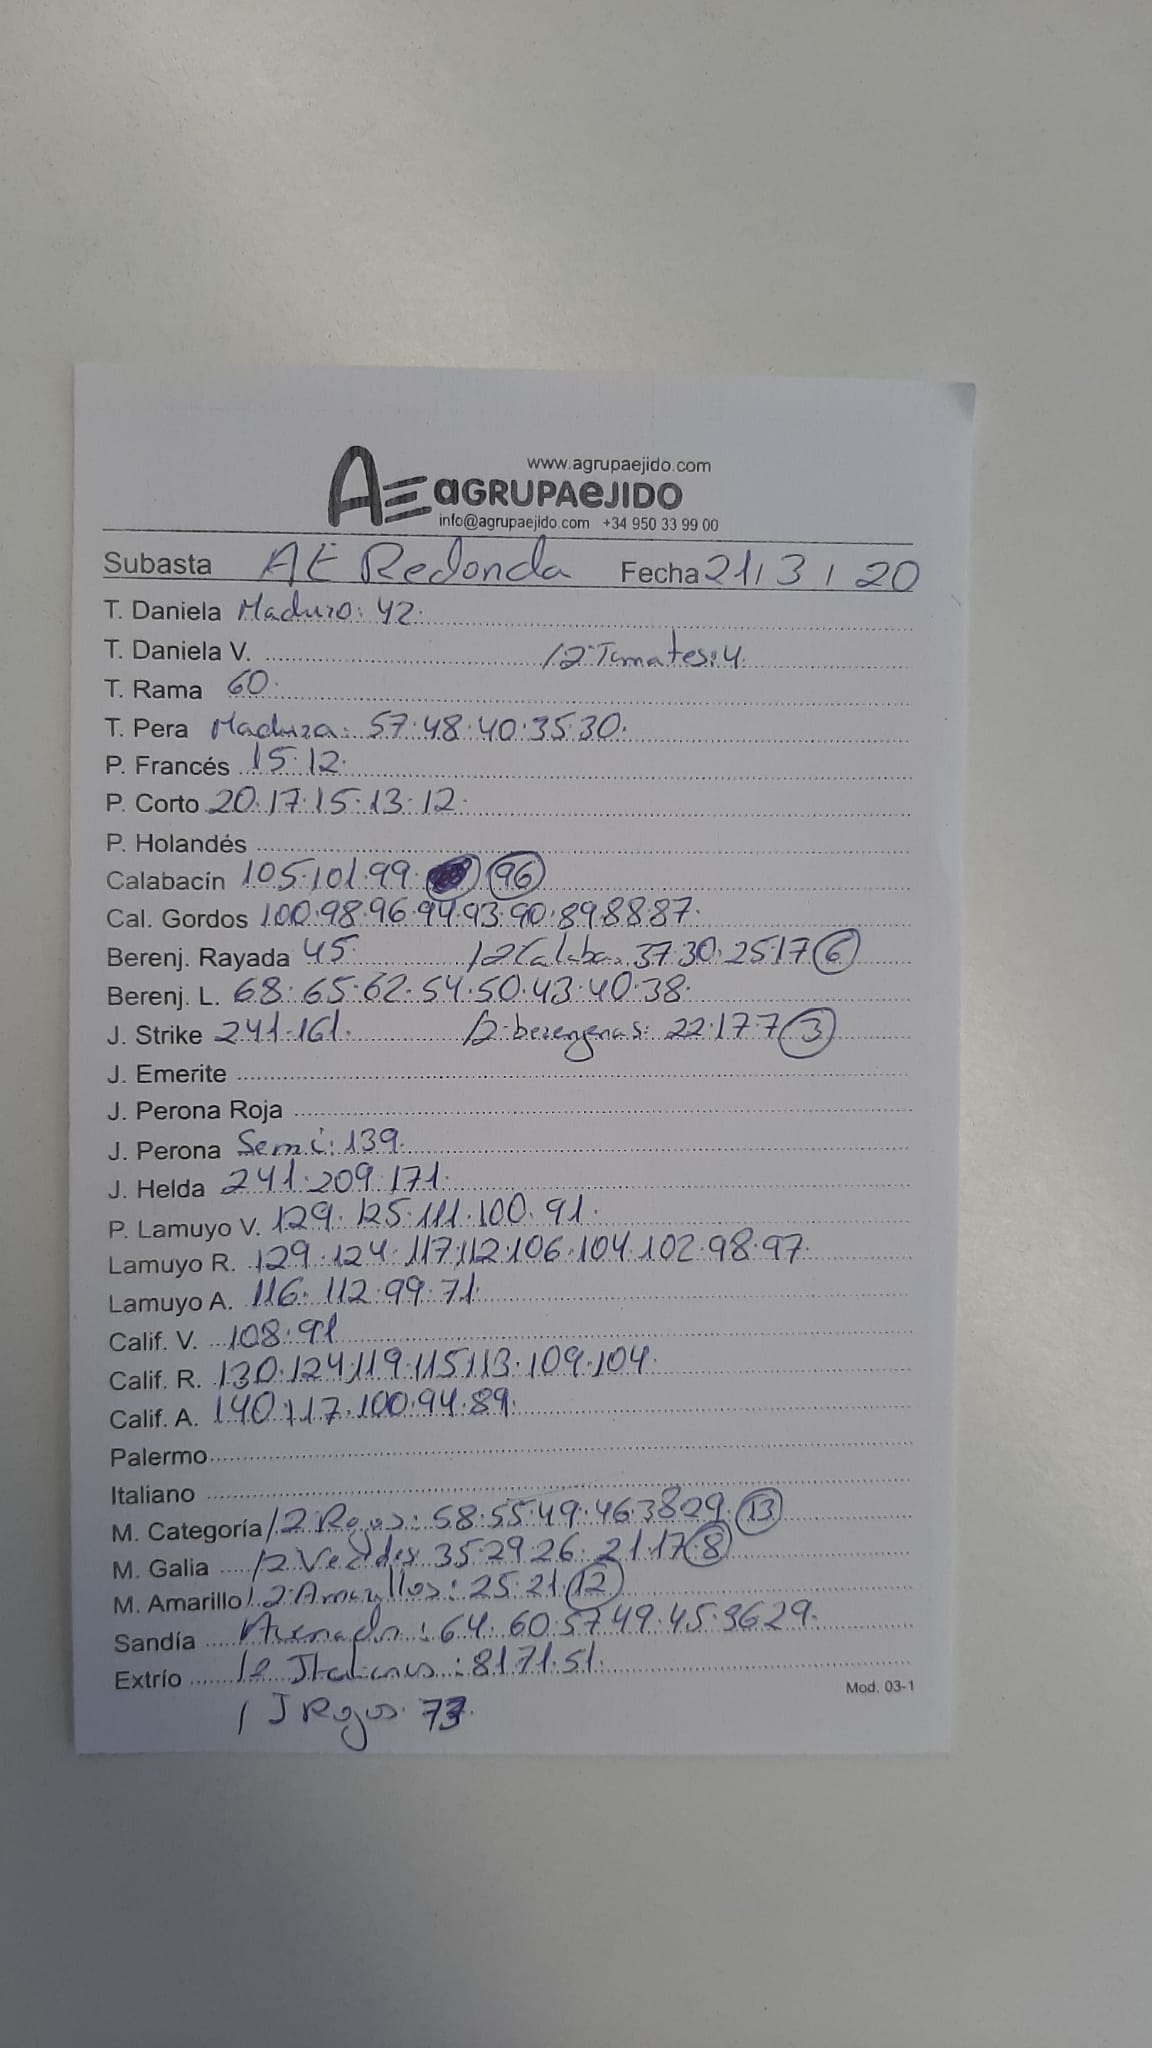 www.agrupaejido.com
AE aGRUPAeJIDO
info@agrupaejido.com +34 950 33 99 00
Subasta AE Redonda Fecha 21/3/20
T. Daniela Maduro: 42.
T. Daniela V. /2 Tomates: 4.
T. Rama 60.
T. Pera Madura: 57.48.40.35.30.
P. Francés 15.12.
P. Corto 20.17.15.13.12.
P. Holandés
Calabacín 105.101.99. 96
Cal. Gordos 100.98.96.94.93.90.89.88.87.
Berenj. Rayada 45. /2 Calaba. 37.30.25.17 6
Berenj. L. 68.65.62.54.50.43.40.38.
J. Strike 241.161. /2 berengenas: 22.17.7 3
J. Emerite
J. Perona Roja
J. Perona Semi: 139.
J. Helda 241.209.171.
P. Lamuyo V. 129.125.111.100.91.
Lamuyo R. 129.124.117.112.106.104.102.98.97.
Lamuyo A. 116.112.99.71.
Calif. V. 108.91
Calif. R. 130.124.119.115.113.109.104.
Calif. A. 140.117.100.94.89.
Palermo
Italiano
M. Categoría /2 Rojos: 58.55.49.46.38.29. 13
M. Galia /2 Verdes 35.29.26.21.17. 8
M. Amarillo /2 Amarillos: 25.21. 12
Sandía : 64.60.57.49.45.36.29.
Extrío Italianos: 81.71.51.
Mod. 03-1
Rojos. 73.